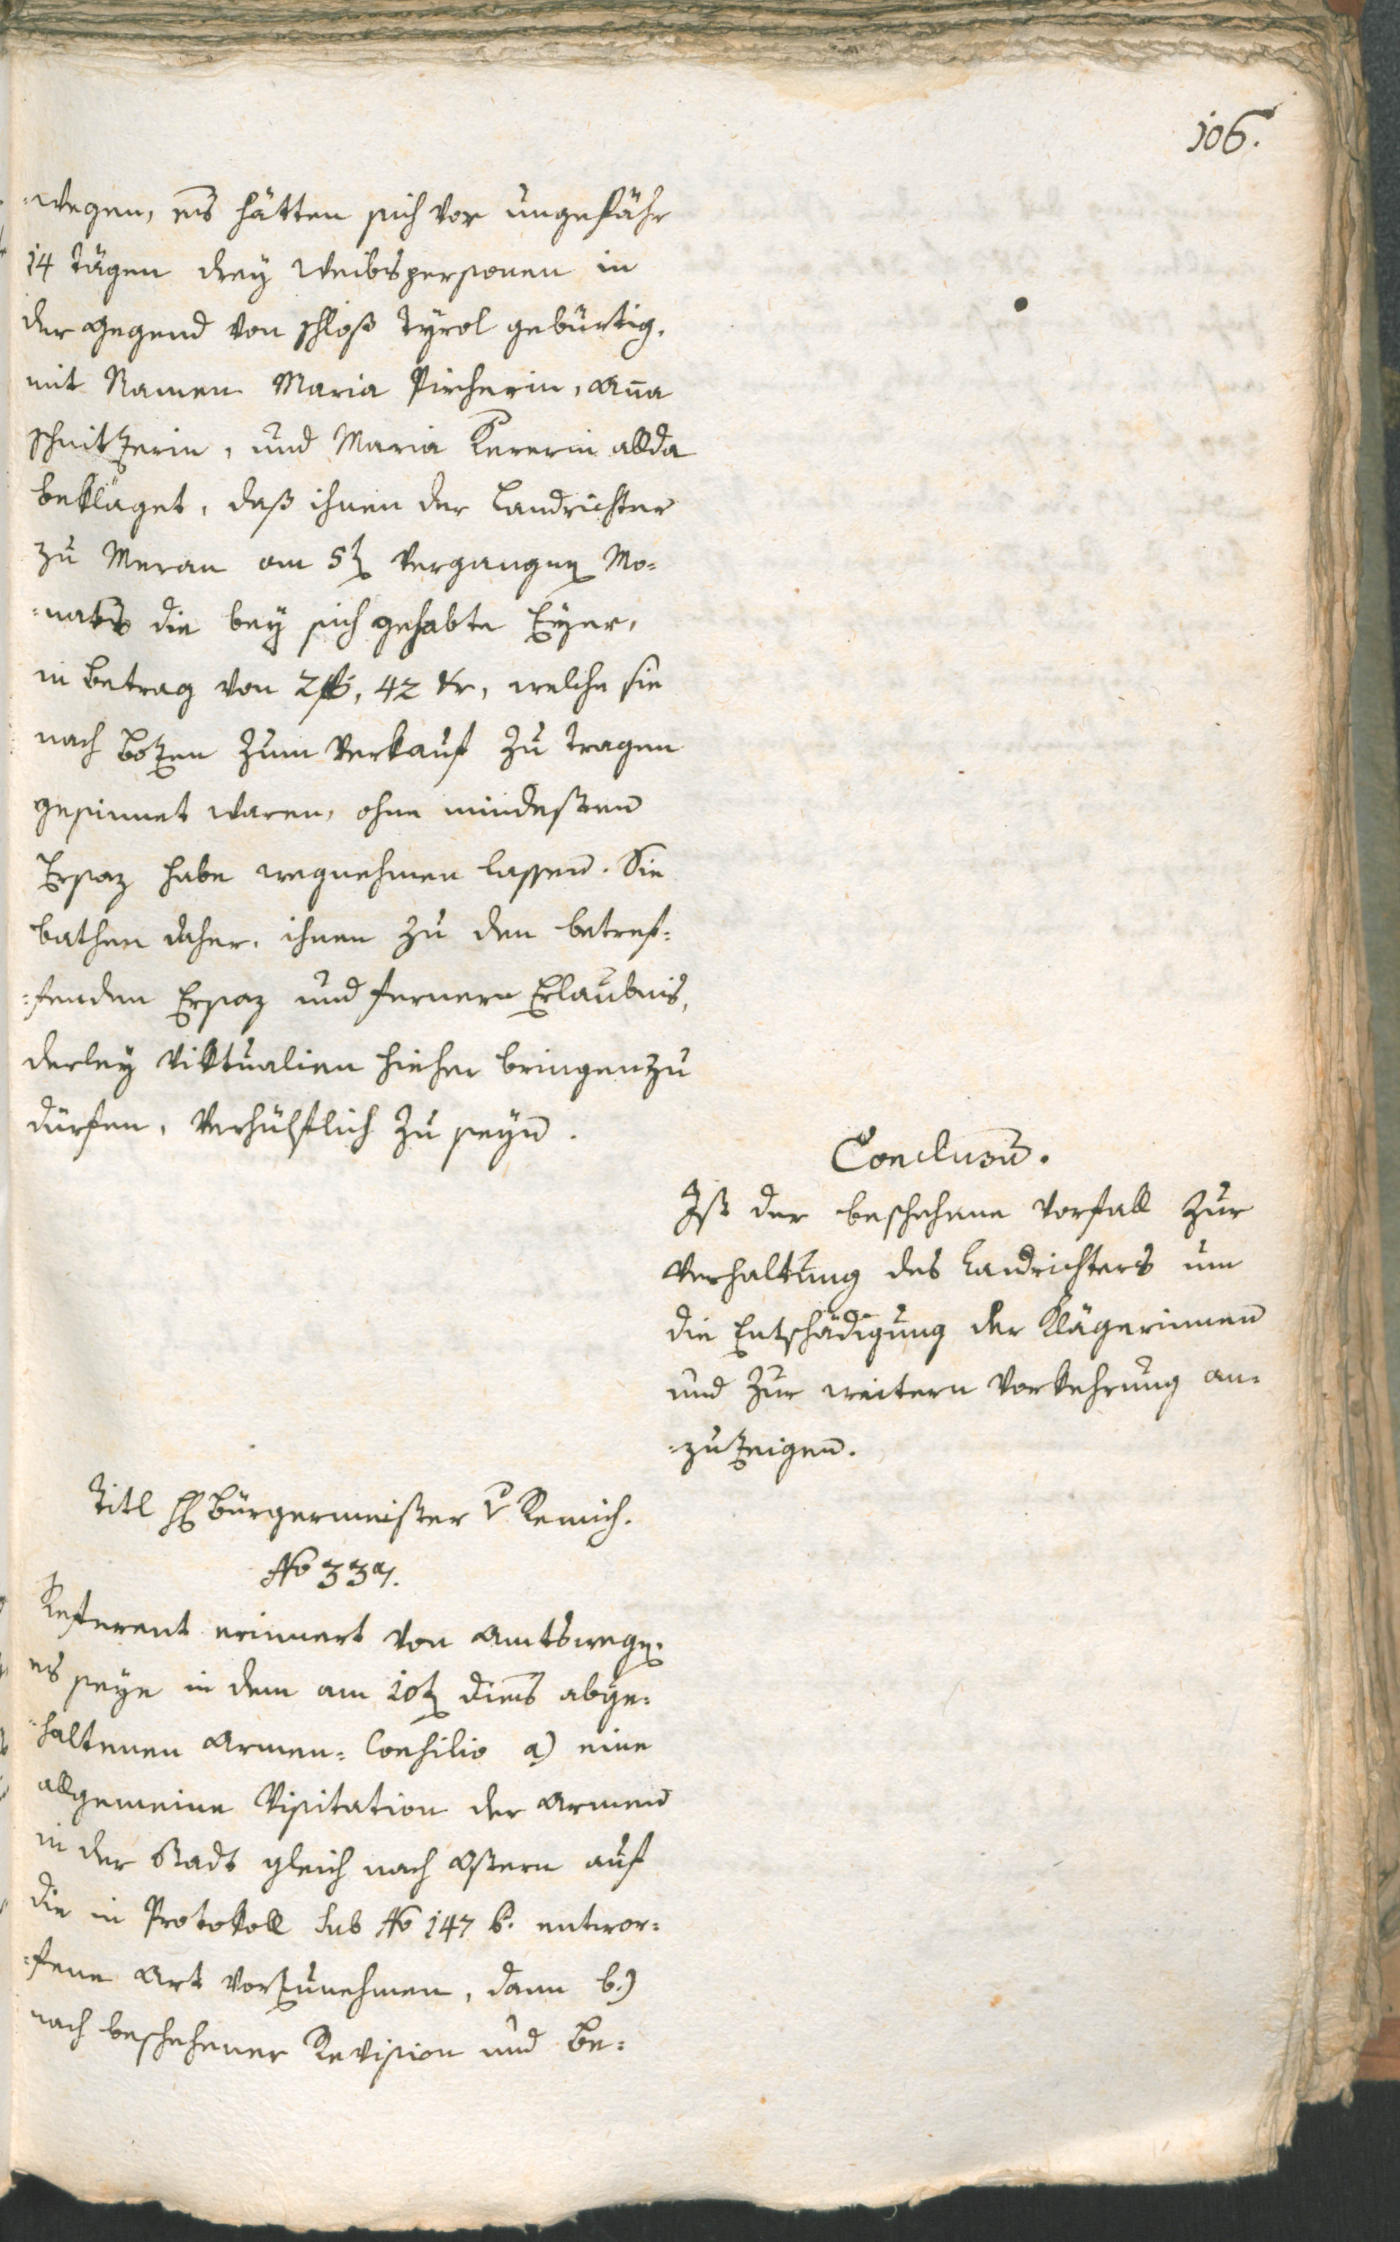 106.
-wegen, es hätten sich vor ungefähr
14 Tägen drey Weibspersonen in
der Gegend von Schloß Tyrol gebürtig,
mit Namen Maria Pircherin, Anna
Schnitzerin, und Maria Kererin allda
beklaget, daß ihnen der Landrichter
zu Meran am 5t vergangen Mo=
=nats die bey sich gehabte Eyer,
in Betrag von 2 f, 42 kr, welche sie
nach Botzen zum Verkauf zu tragen
gesinnet waren, ohne mindesten
Ersaz habe wegnehmen lassen. Sie
bathen daher, ihnen zu den betref=
=fenden Ersaz und fernern Erlaubnis,
derley Viktualien hieher bringen zu
dürfen, verhülflich zu seyn.
Conclusum.
Ist der beschehene Vorfall zur
Verhaltung des Landrichters um
die Entschädigung der Klägerinnen
und zur weitern Vorkehrung an=
=zuzeigen.
Titl H Bürgermeister v Remich.
No 339.
Referent erinnert von Amtswegen
es seye in dem am 10t dieses abge=
=haltenen Armen=Consilio a) eine
allgemeine Visitation der Armen
in der Stadt gleich nach Ostern auf
die in Protokoll sub No 147 b. entwor=
=fene Art vorzunehmen, dann b.)
nach beschehener Revision und Be=